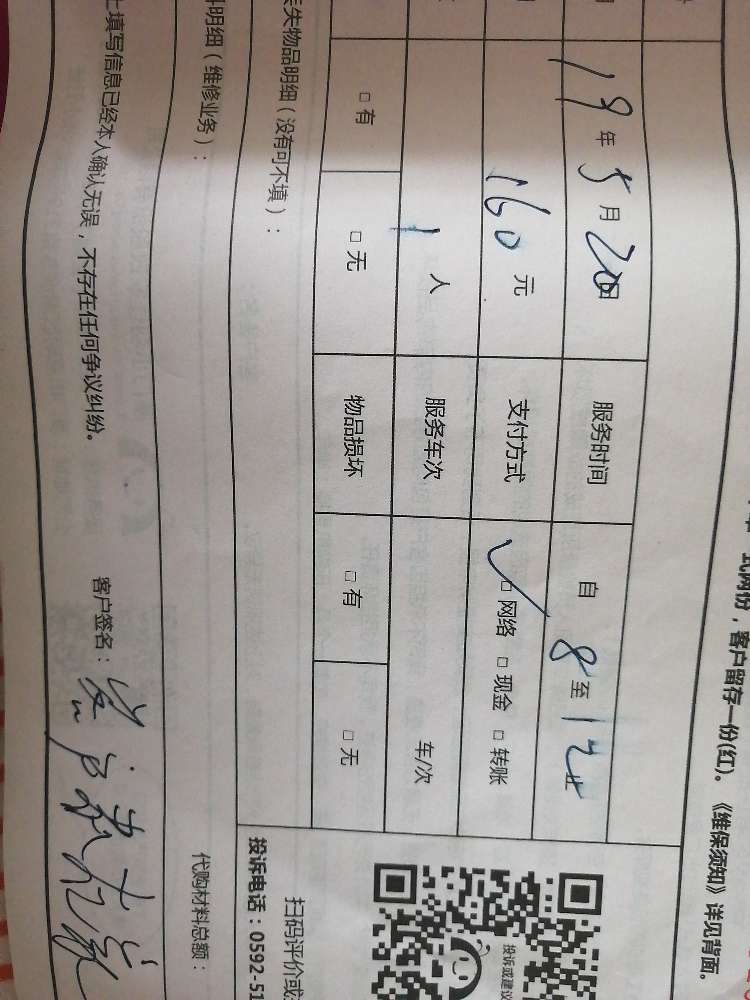 式两份，客户留存一份(红)。《维保须知》详见背面。
19年5月20日 服务时间 自8至12
160元 支付方式 □网络 □现金 □转账
1人 服务车次 车/次
□有 □无 物品损坏 □有 □无
失物品明细（没有可不填）：
扫码评价或
投诉或建议
投诉电话：0592-51
明细（维修业务）：
代购材料总额：
填写信息已经本人确认无误，不存在任何争议纠纷。
客户签名：